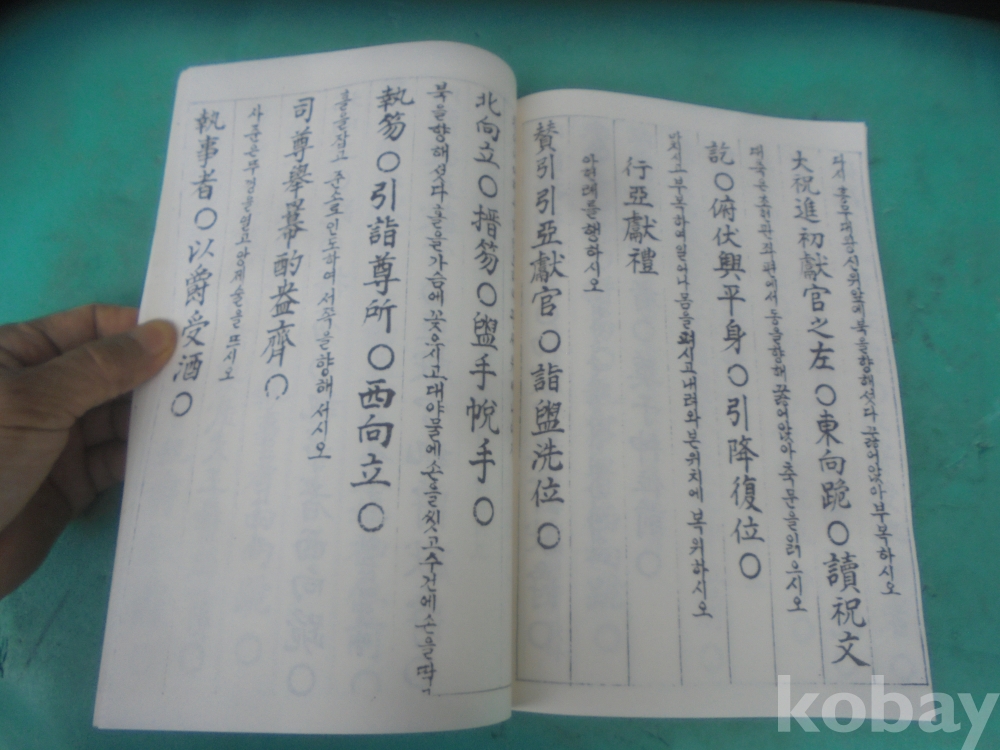 다시 홍무대왕신위앞에북을향해섰다 끓어앉아부복하시오
大祝進初獻官之左○東向跪○讀祝文
대축은초헌관좌편에서동을향해 꿇어앉아축문을읽으시오
訖○俯伏興平身○引降復位○
마치시고부복하여일어나몸을펴시고내려와본위치에 복위하시오
行亞獻禮
아헌례를행하시오
贊引引亞獻官○詣盥洗位○
北向立○搢笏○盥手帨手○
북을향해섰다 홀을가슴에꽂으시고대야물에손을씻고수건에손을딱
執笏○引詣尊所○西向立○
홀을잡고 준소로인도하여서쪽을향해서시오
司尊擧冪酌盎齊○
사준은뚜껑을열고앙제술을뜨시오
執事者○以爵受酒○
kobay